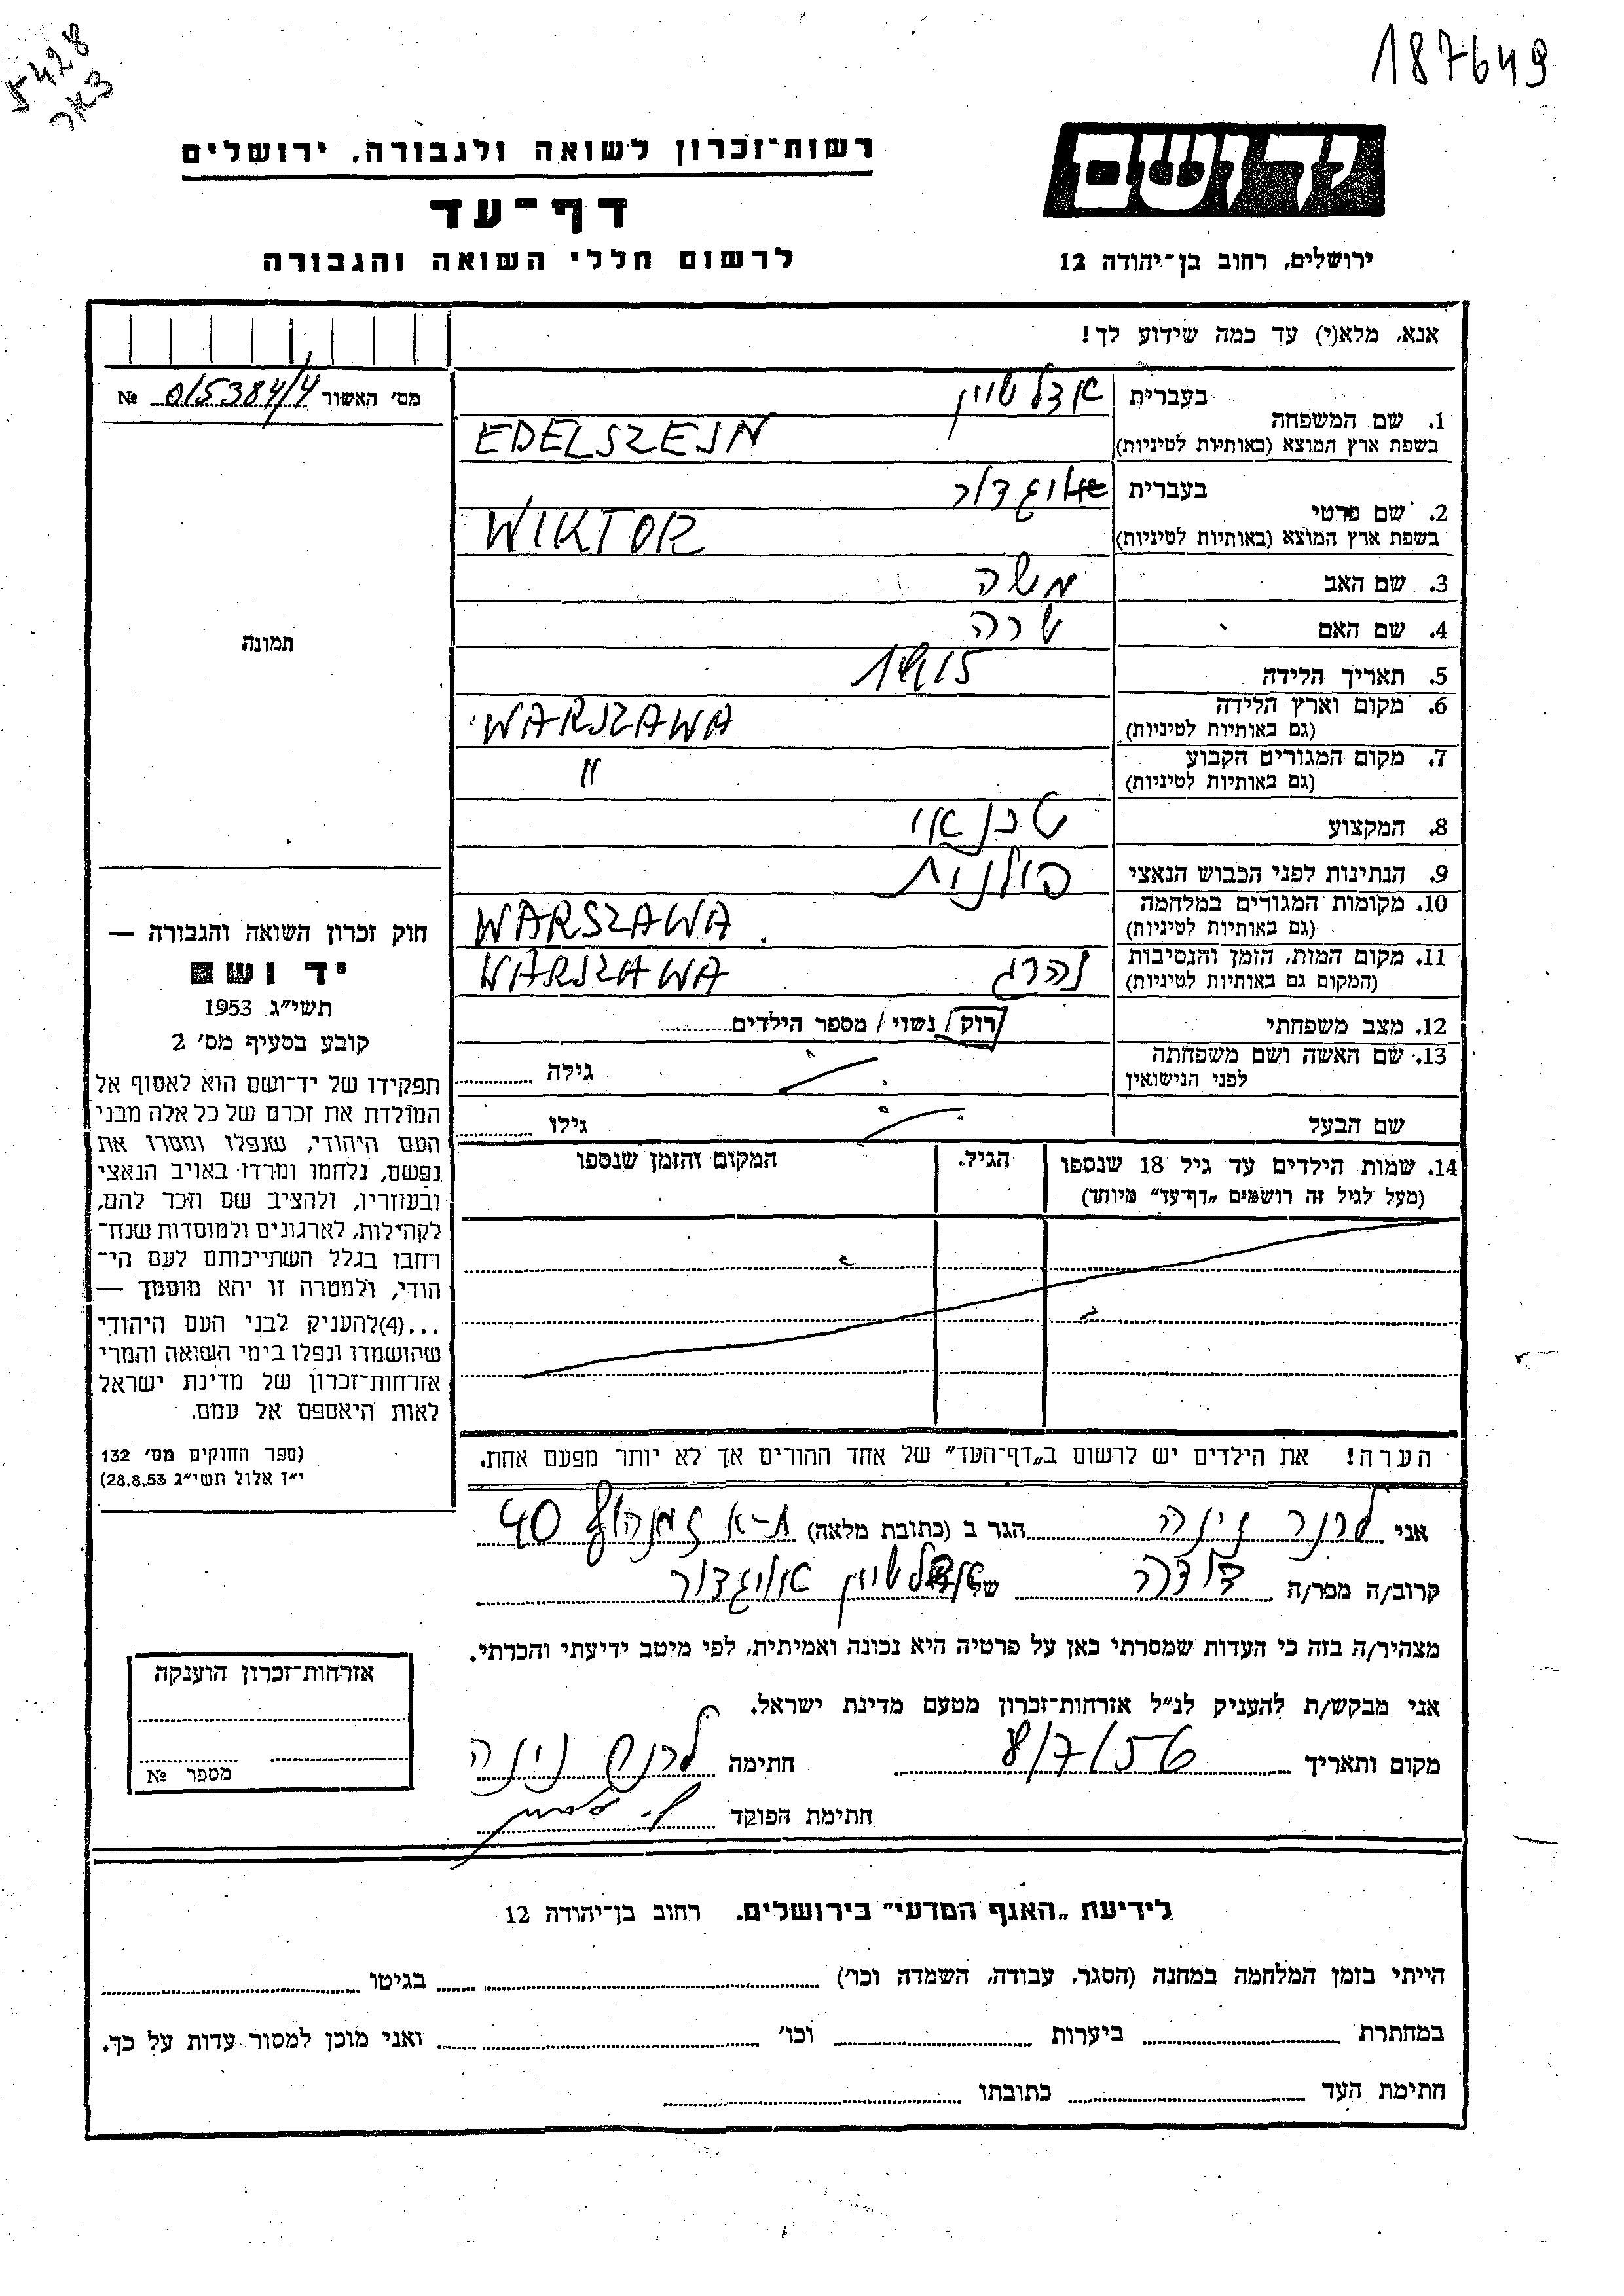 5428
187649
יד ושם
רשות־זכרון לשואה ולגבורה, ירושלים
דף־עד
לרשום חללי השואה והגבורה
ירושלים, רחוב בן־יהודה 12
אנא, מלא(י) עד כמה שידוע לך!
מס׳ האשור 015384/4 №
1. שם המשפחה
בעברית אדלשטיין
בשפת ארץ המוצא (באותיות לטיניות) EDELSZEJN
2. שם פרטי
בעברית אויגדור
בשפת ארץ המוצא (באותיות לטיניות) WIKTOR
3. שם האב משה
4. שם האם שרה
5. תאריך הלידה 1915
6. מקום וארץ הלידה
(גם באותיות לטיניות) WARSZAWA
7. מקום המגורים הקבוע
(גם באותיות לטיניות) "
8. המקצוע טכנאי
9. הנתינות לפני הכבוש הנאצי פולנית
10. מקומות המגורים במלחמה
(גם באותיות לטיניות) WARSZAWA
11. מקום המות, הזמן והנסיבות
(המקום גם באותיות לטיניות) נהרג WARSZAWA
12. מצב משפחתי רוק / נשוי / מספר הילדים
13. שם האשה ושם משפחתה
לפני הנישואין גילה
שם הבעל גילו
14. שמות הילדים עד גיל 18 שנספו
(מעל לגיל זה רושמים „דף־עד” מיוחד)
הגיל.
המקום והזמן שנספו
הערה! את הילדים יש לרשום ב„דף־העד” של אחד ההורים אך לא יותר מפעם אחת.
תמונה
חוק זכרון השואה והגבורה —
יד ושם
תשי״ג 1953
קובע בסעיף מס׳ 2
תפקידו של יד־ושם הוא לאסוף אל
המולדת את זכרם של כל אלה מבני
העם היהודי, שנפלו ומסרו את
נפשם, נלחמו ומרדו באויב הנאצי
ובעוזריו, ולהציב שם וזכר להם,
לקהילות, לארגונים ולמוסדות שנח־
רחבו בגלל השתייכותם לעם הי־
הודי, ולמטרה זו יהא מוסמך —
...(4)להעניק לבני העם היהודי
שהושמדו ונפלו בימי השואה והמרי
אזרחות־זכרון של מדינת ישראל
לאות היאספם אל עמם.
(ספר החוקים מס׳ 132
י״ז אלול תשי״ג 28.8.53)
אני לרנר נינה הגר ב (כתובת מלאה) ת-א זמנהוף 40
קרוב/ה מכר/ה דודה של אדלשטיין אויגדור
מצהיר/ה בזה כי העדות שמסרתי כאן על פרטיה היא נכונה ואמיתית, לפי מיטב ידיעתי והכרתי.
אני מבקש/ת להעניק לנ״ל אזרחות־זכרון מטעם מדינת ישראל.
מקום ותאריך 8/7/56 חתימה לרנר נינה
חתימת הפוקד
אזרחות־זכרון הוענקה
מספר №
לידיעת „האגף המדעי” בירושלים. רחוב בן־יהודה 12
הייתי בזמן המלחמה במחנה (הסגר, עבודה, השמדה וכו׳) בגיטו
במחתרת ביערות וכו׳ ואני מוכן למסור עדות על כך.
חתימת העד כתובתו